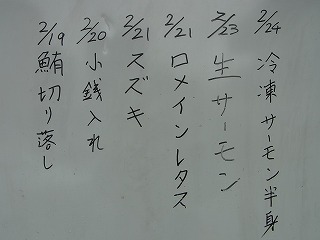 2/24 冷凍サーモン半身
2/23 生サーモン
2/21 ロメインレタス
2/21 スズキ
2/20 小銭入れ
2/19 鮪切り落し